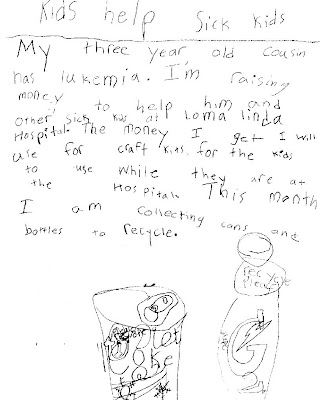 Kids help sick kids
My three year old cousin
has lukemia. I'm raising
money to help him and
other sick kids at Loma linda
Hospital. The money I get I will
use for craft kits. for the kids
to use while they are at
the Hospital. This month
I am collecting cans and
bottles to recycle.
Coke
G